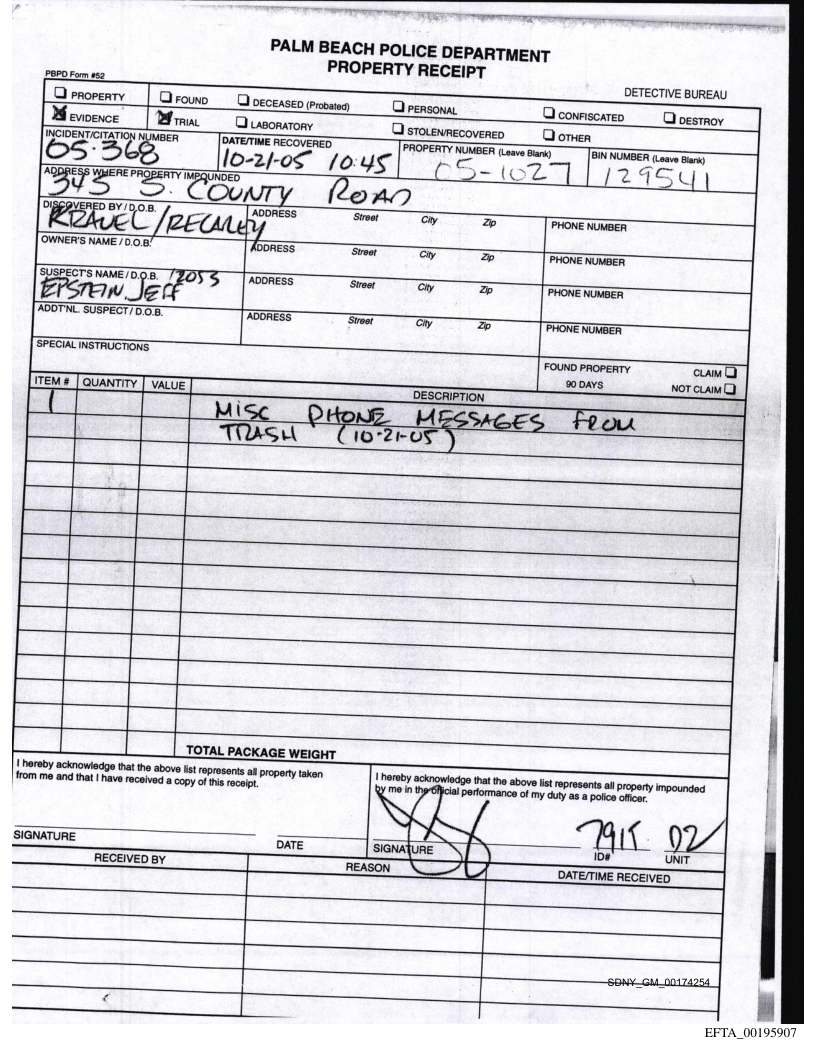 PALM BEACH POLICE DEPARTMENT
PROPERTY RECEIPT
PBPD Form #52
DETECTIVE BUREAU
PROPERTY FOUND DECEASED (Probated) PERSONAL CONFISCATED DESTROY
EVIDENCE TRIAL LABORATORY STOLEN/RECOVERED OTHER
INCIDENT/CITATION NUMBER DATE/TIME RECOVERED PROPERTY NUMBER (Leave Blank) BIN NUMBER (Leave Blank)
05-368 10-21-05 10:45 05-1027 129541
ADDRESS WHERE PROPERTY IMPOUNDED
345 S. COUNTY ROAD
DISCOVERED BY / D.O.B. ADDRESS Street City Zip PHONE NUMBER
KRAUEL/RECAREY
OWNER'S NAME / D.O.B. ADDRESS Street City Zip PHONE NUMBER
SUSPECT'S NAME / D.O.B. ADDRESS Street City Zip PHONE NUMBER
EPSTEIN, JEFF
ADDT'NL. SUSPECT / D.O.B. ADDRESS Street City Zip PHONE NUMBER
SPECIAL INSTRUCTIONS
FOUND PROPERTY CLAIM
90 DAYS NOT CLAIM
ITEM # QUANTITY VALUE DESCRIPTION
1 MISC PHONE MESSAGES FROM
TRASH (10-21-05)
TOTAL PACKAGE WEIGHT
I hereby acknowledge that the above list represents all property taken
from me and that I have received a copy of this receipt.
I hereby acknowledge that the above list represents all property impounded
by me in the official performance of my duty as a police officer.
7915 D2
SIGNATURE DATE SIGNATURE ID# UNIT
RECEIVED BY REASON DATE/TIME RECEIVED
SDNY_GM_00174254
EFTA_00195907